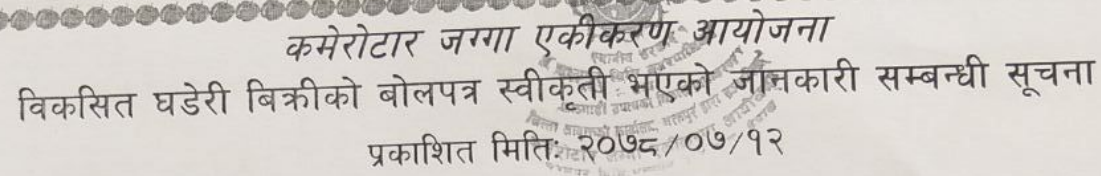 कमेरोटार जग्गा एकीकरण आयोजना
विकसित घडेरी बिक्रीको बोलपत्र स्वीकृती भएको जानकारी सम्बन्धी सूचना
प्रकाशित मितिः २०७८/०७/१२